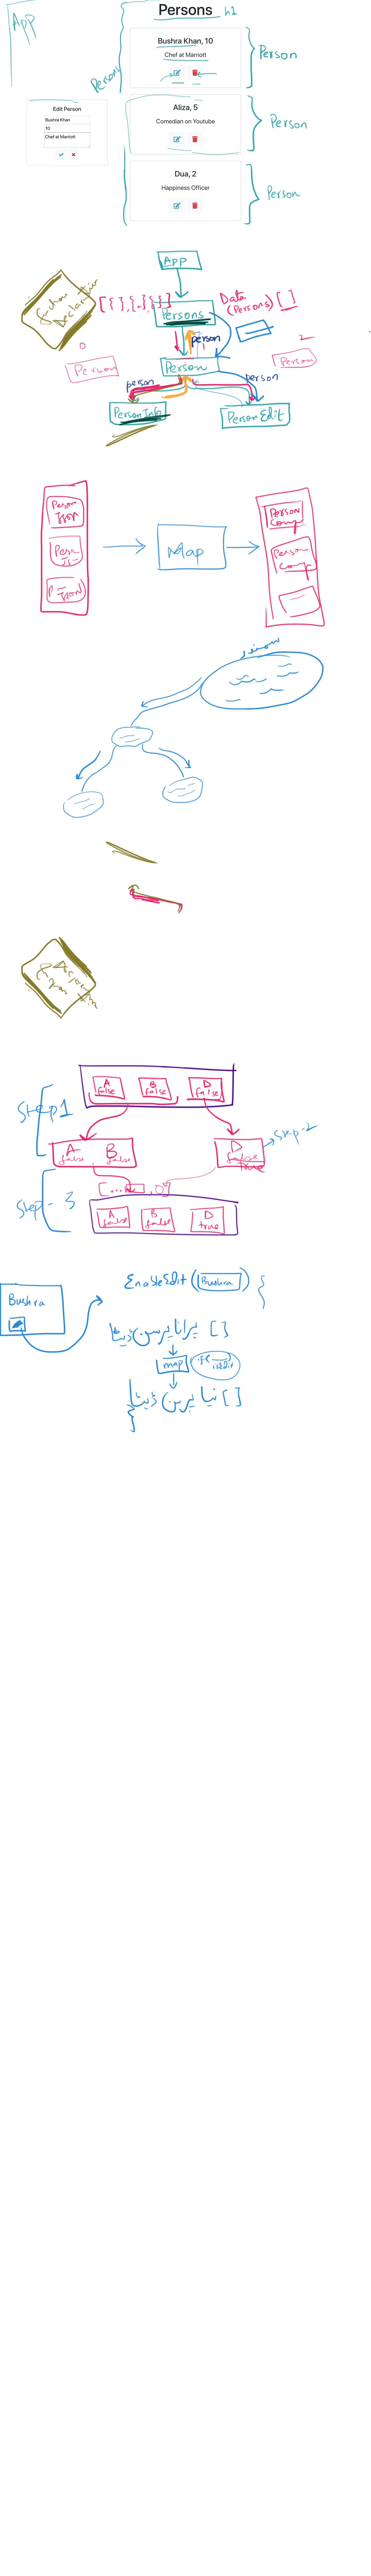 App
Persons h1
Persons
Bushra Khan, 10
Chef at Marriott
Person
Edit Person
Bushra Khan
10
Chef at Marriott
Aliza, 5
Comedian on Youtube
Person
Dua, 2
Happiness Officer
Person
App
Function Declaration
[{},{},{}]
Persons
Data (Persons) []
person
0
Person
Person
1
2
Person
person
person
Person Info
Person Edit
Person Json
Map
Person Comp
Person Comp
سمندر
Step 1
A false
B false
D false
A false
B false
D false true
Step-2
Step - 3
A false
B false
D true
Bushra
EnableEdit (Bushra) {
پرانا پرسن ڈیٹا []
map
if( isEdit
نیا پرسن ڈیٹا []
}